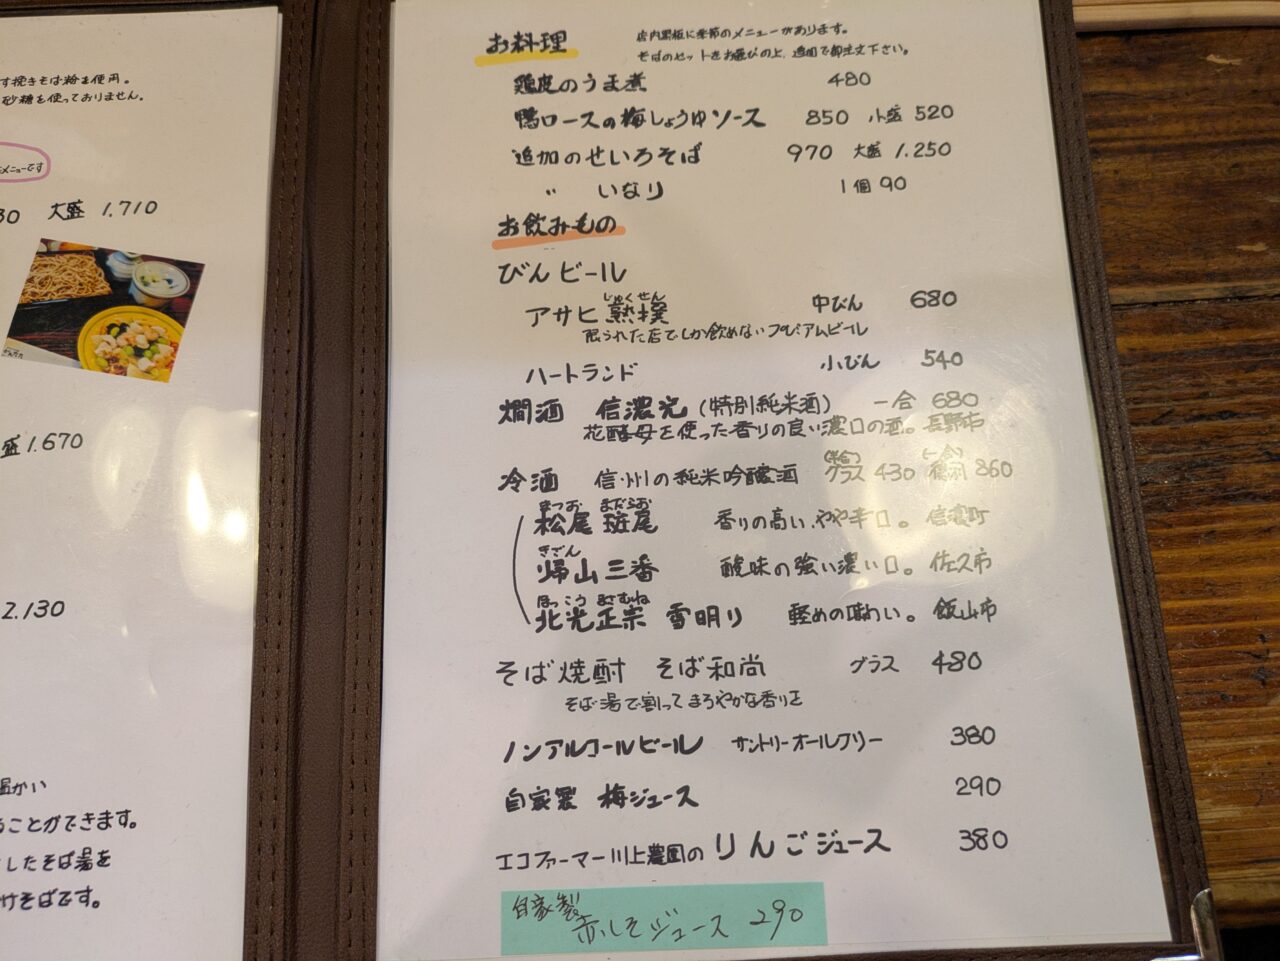 す挽きそば粉を使用。
砂糖を使っておりません。
メニューです
30 大盛 1.710
盛 1.670
2.130
温かい
ることができます。
したそば湯を
けそばです。
お料理
店内黒板に季節のメニューがあります。
そばのセットをお選びの上、追加で御注文下さい。
鶏皮のうま煮 480
鴨ロースの梅しょうゆソース 850 小盛 520
追加のせいろそば 970 大盛 1.250
〃 いなり 1個 90
お飲みもの
びんビール
じゅくせん
アサヒ 熟撰 中びん 680
限られた店でしか飲めないプレミアムビール
ハートランド 小びん 540
燗酒 信濃光 (特別純米酒) 一合 680
花酵母を使った香りの良い濃口の酒。長野市
(半合) (一合)
冷酒 信州の純米吟醸酒 グラス 430 徳利 860
まつお まだらお
松尾 斑尾 香りの高い、やや辛口。信濃町
きざん
帰山 三番 酸味の強い濃い口。佐久市
ほっこう まさむね
北光正宗 雪明り 軽めの味わい。飯山市
そば焼酎 そば和尚 グラス 480
そば湯で割ってまろやかな香りを
ノンアルコールビール サントリーオールフリー 380
自家製 梅ジュース 290
エコファーマー川上農園の りんごジュース 380
自家製
赤しそジュース 290